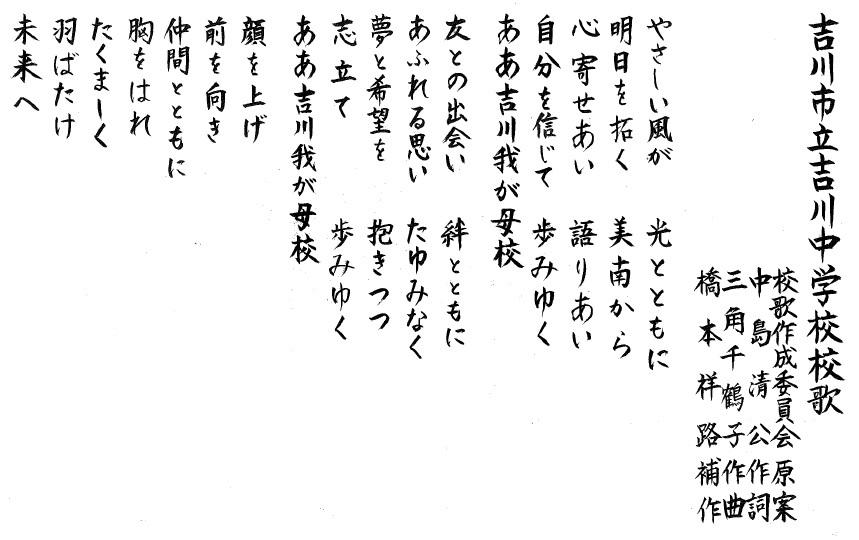 吉川市立吉川中学校校歌
校歌作成委員会原案
中島清公作詞
三角千鶴子作曲
橋本祥路補作
やさしい風が　光とともに
明日を拓く　美南から
心寄せあい　語りあい
自分を信じて　歩みゆく
ああ吉川我が母校
友との出会い　絆とともに
あふれる思い　たゆみなく
夢と希望を　抱きつつ
志立て　歩みゆく
ああ吉川我が母校
顔を上げ
前を向き
仲間とともに
胸をはれ
たくましく
羽ばたけ
未来へ